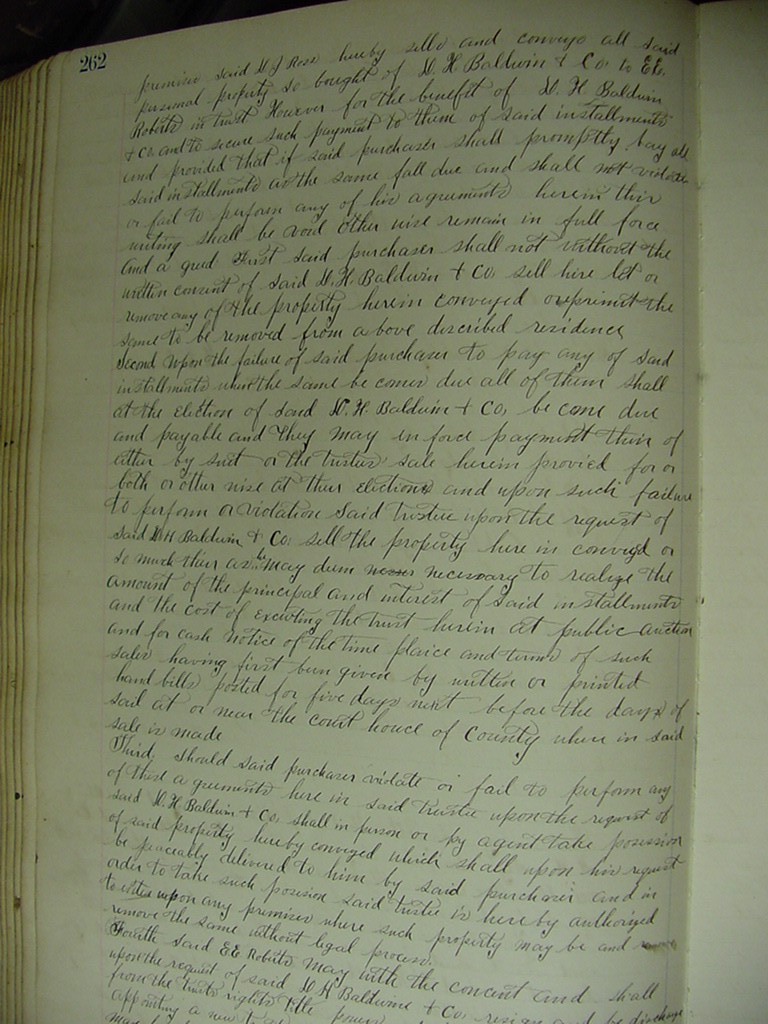 262
premises said W J Rose hereby sells and conveys all said
personal property so bought of D. H Baldwin & Co. to E.E.
Roberts in trust However for the benefit of D. H Baldwin
& Co. and to secure such payment to them of said installments
and provided that if said purchaser shall promptly pay all
said installments as the same fall due and shall not violate
or fail to perform any of his agreements herein this
writing shall be void other wise remain in full force
And a greed First said purchaser shall not without the
written consent of said D. H. Baldwin & Co. sell hire let or
remove any of the property herein conveyed or permit the
same to be removed from above discribed residence
Second upon the failure of said purchaser to pay any of said
installments when the same be comes due all of them shall
at the election of said D. H. Baldwin & Co. be come due
and payable and they may in force payment their of
either by suit or the trustes sale herein provied for or
both or other wise at their election and upon such failure
to perform or violation said trustee upon the request of
said D. H Baldwin & Co. sell the property here in conveyed or
so much their as he may deem necessary to realize the
amount of the principal and interest of said installments
and the cost of executing the trust herein at public auction
and for cash notice of the time plaice and terms of such
sales having first been given by written or printed
hand bills posted for five days next before the day of
sail at or near the court house of County where in said
sale is made
Third, Should said purchaser violate or fail to perform any
of these a greements here in said trustee upon the request of
said D. H Baldwin & Co. shall in person or by agent take posession
of said property hereby conveyed which shall upon his request
be peaceably delivered to him by said purchaser and in
order to take such posesion said trustee is here by authorized
to upon any premises where such property may be and
remove the same without legal process.
Fourth Said E.E. Roberts may with the concent and shall
upon the request of said D H Baldwine & Co. resign and be discharge
from the trusts rights title powers
appointing a new
may